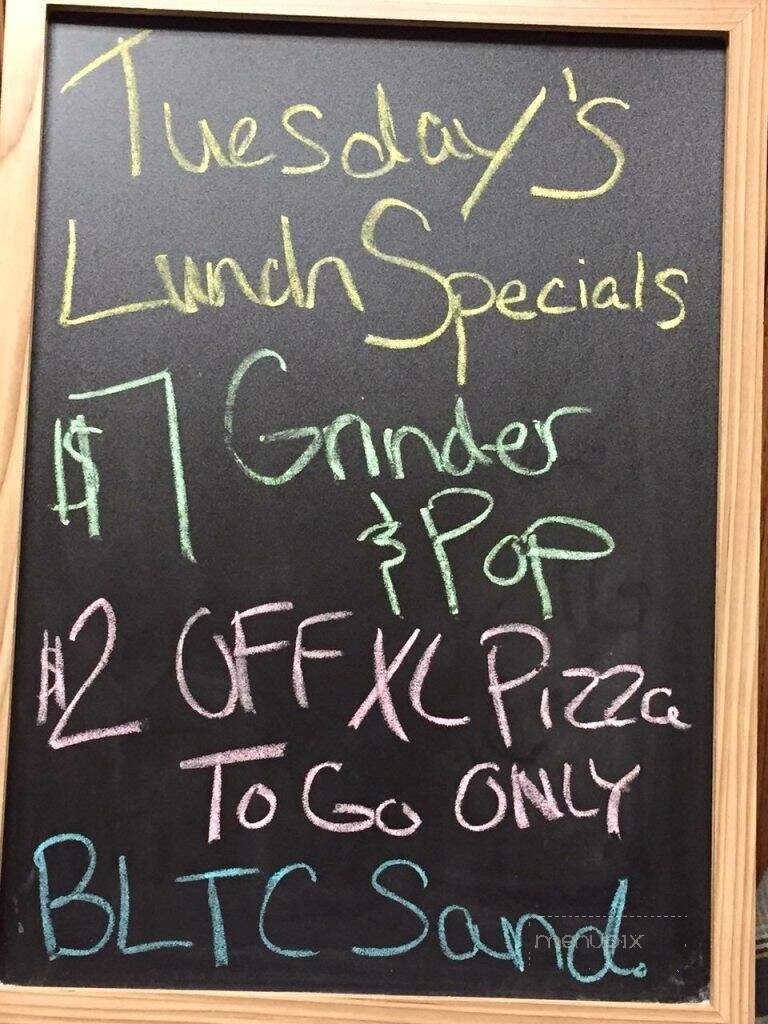 Tuesday's
Lunch Specials
$7 Grinder
& Pop
$2 OFF XL Pizza
To Go ONLY
BLTC Sand.
menupix